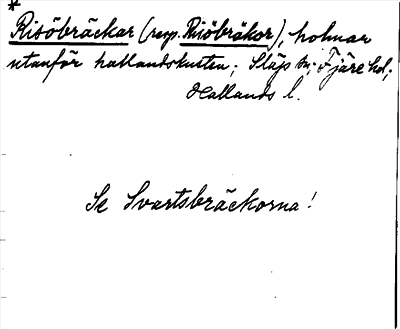 *
Risöbräckar (resp. Risöbräkor), holmar
utanför hallandskusten; Släps sn; Fjäre hd;
Hallands l.
Se Svartsbräckorna!